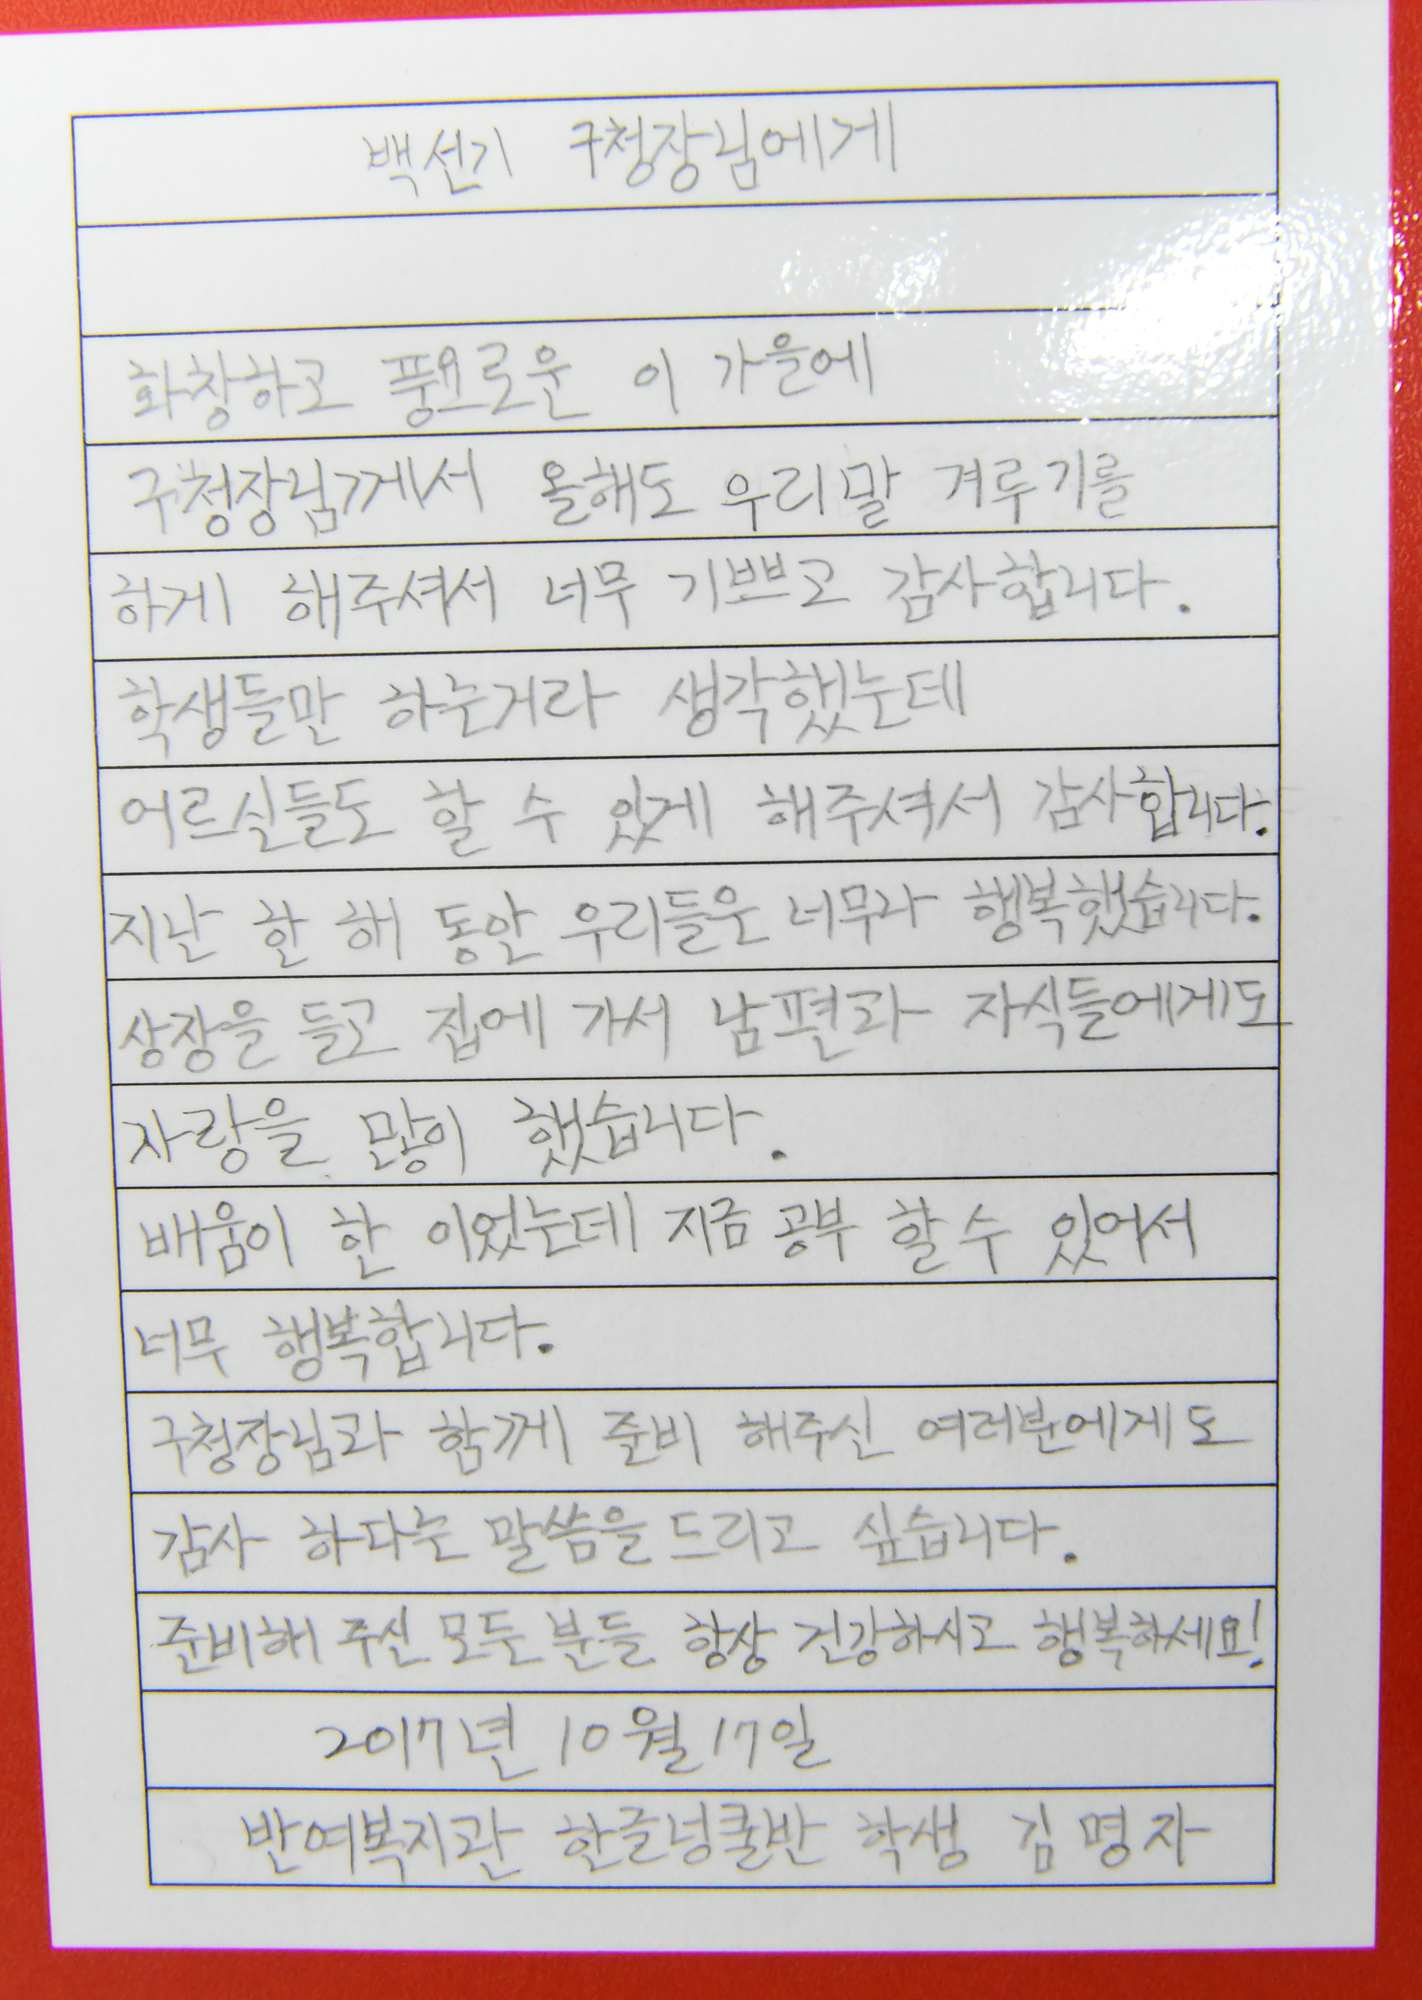 백선기 구청장님에게
화창하고 풍요로운 이 가을에
구청장님께서 올해도 우리말 겨루기를
하게 해주셔서 너무 기쁘고 감사합니다.
학생들만 하는거라 생각했는데
어르신들도 할 수 있게 해주셔서 감사합니다.
지난 한 해 동안 우리들은 너무나 행복했습니다.
상장을 들고 집에 가서 남편과 자식들에게도
자랑을 많이 했습니다.
배움이 한 이었는데 지금 공부 할 수 있어서
너무 행복합니다.
구청장님과 함께 준비 해주신 여러분에게도
감사 하다는 말씀을 드리고 싶습니다.
준비해 주신 모든 분들 항상 건강하시고 행복하세요!
2017년 10월 17일
반여복지관 한글넝쿨반 학생 김명자